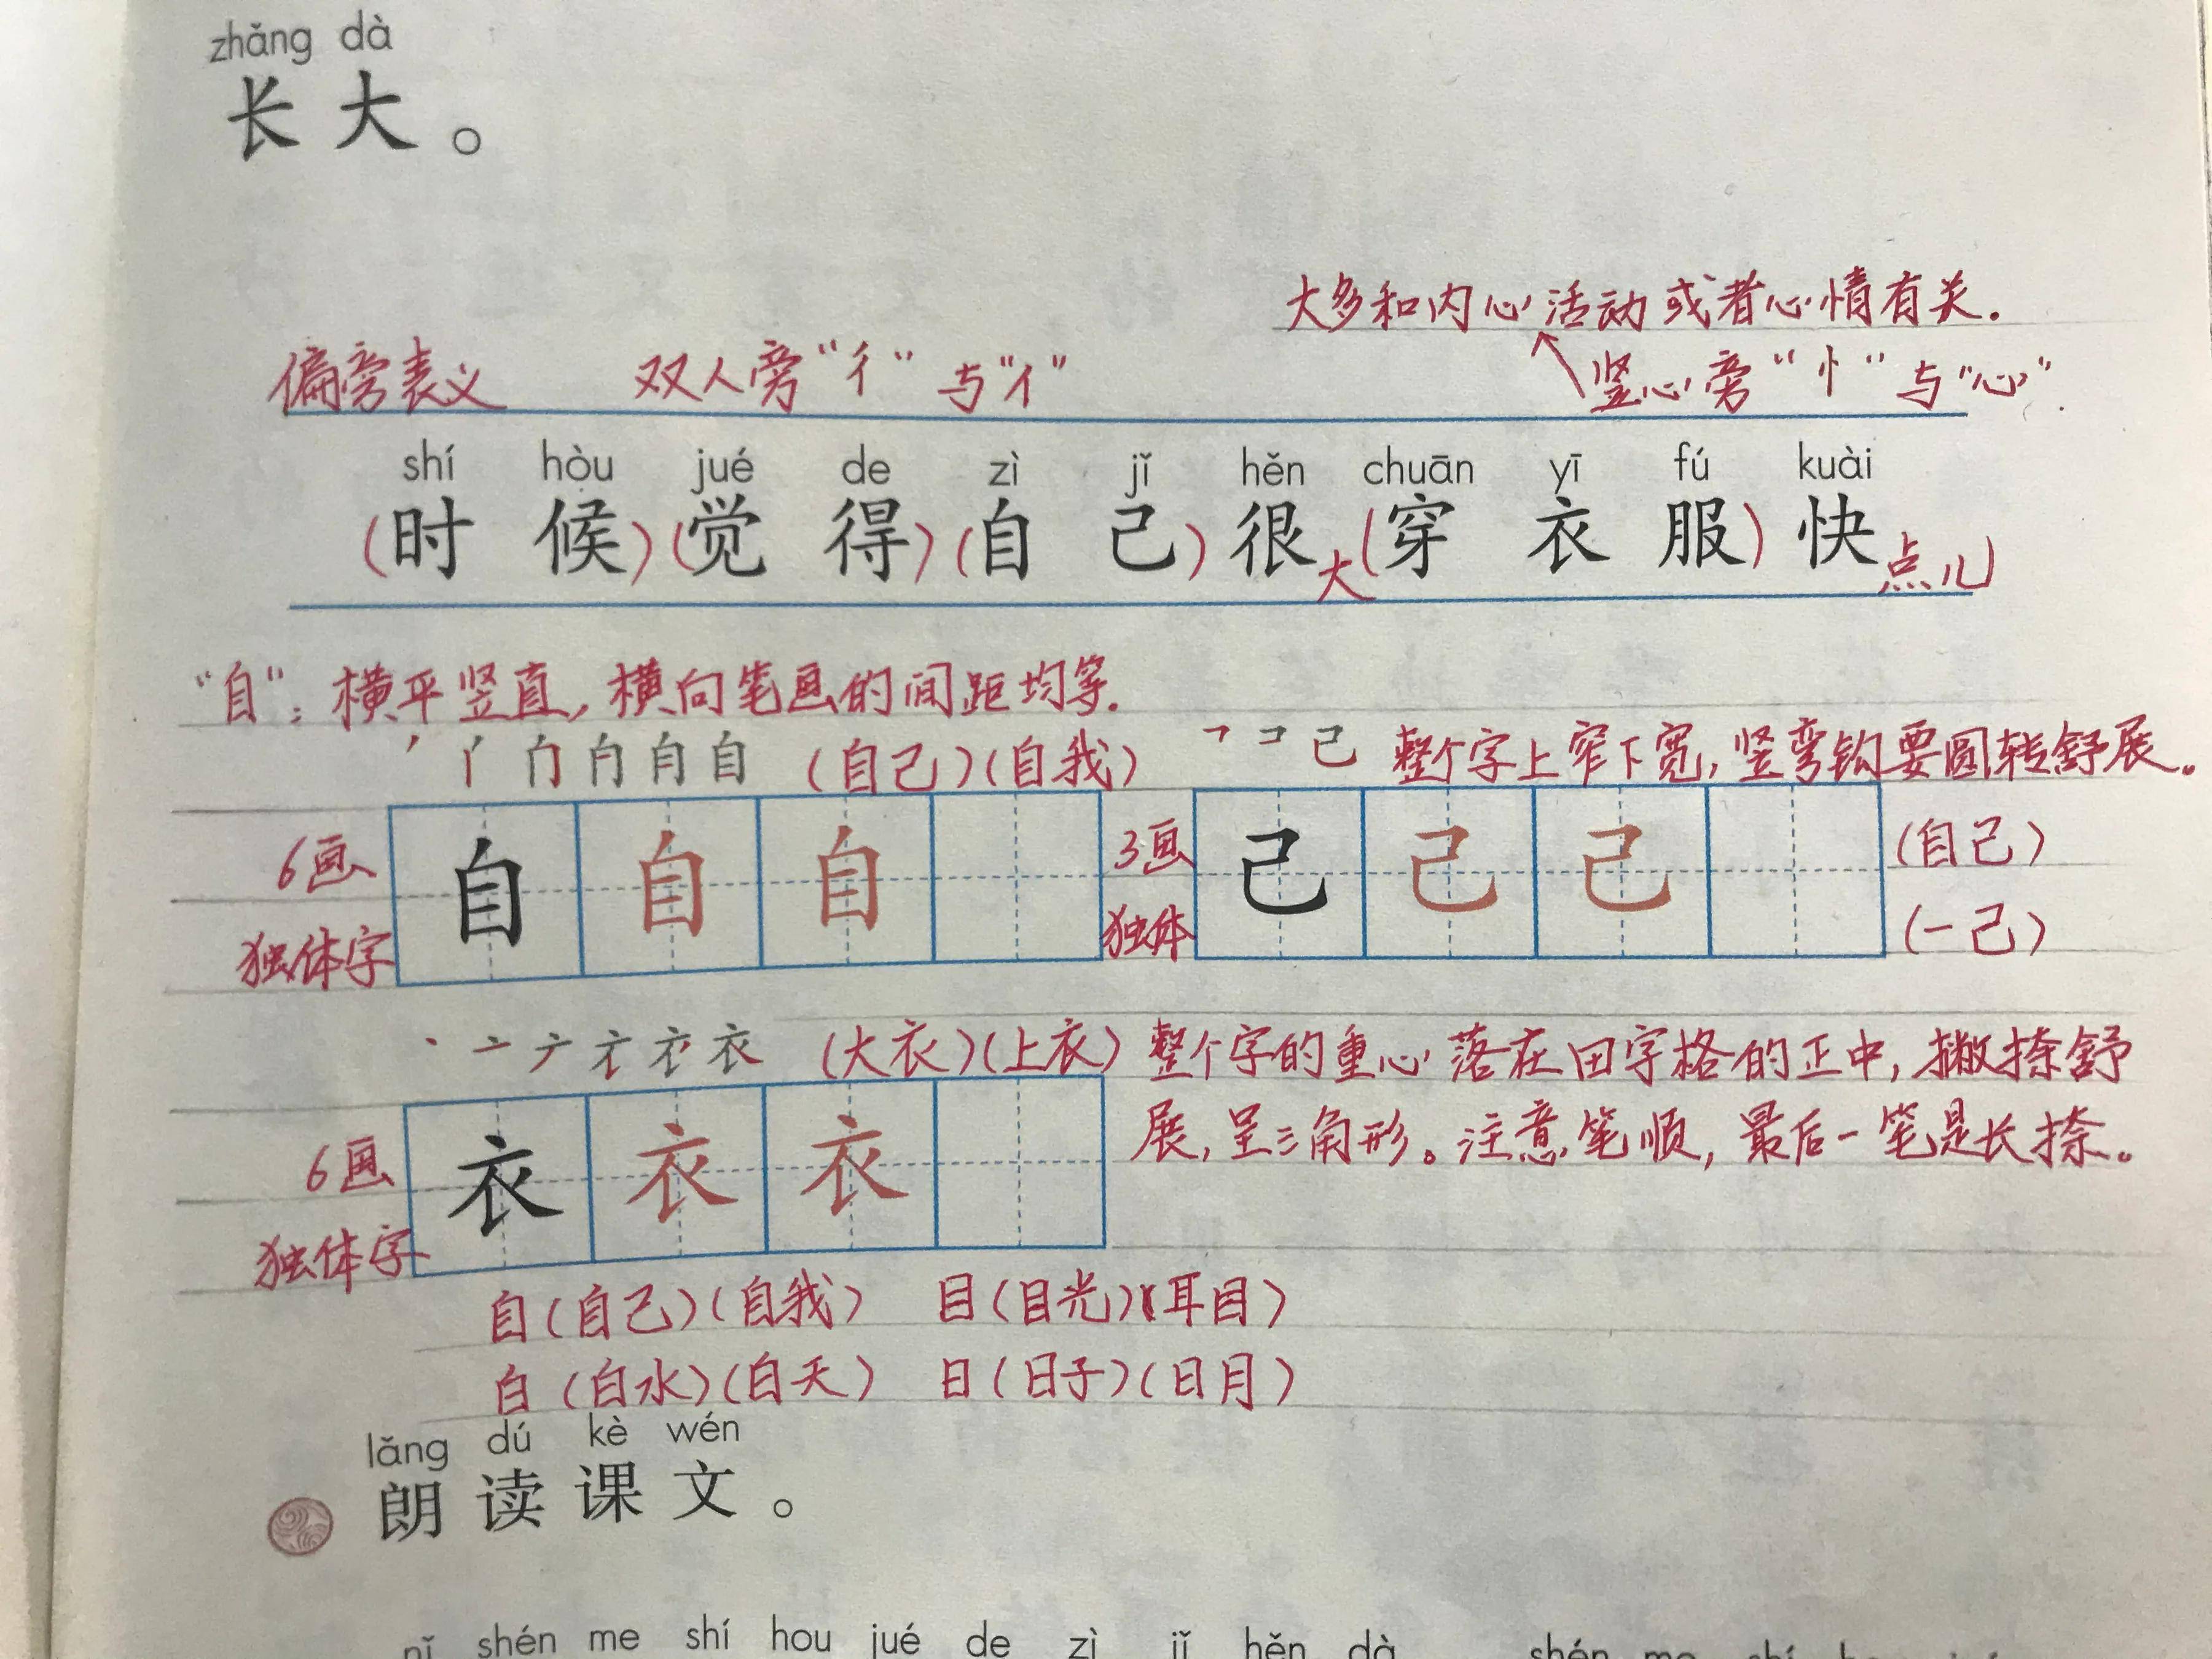 zhǎng dà
长大。
大多和内心活动或者心情有关.
偏旁表义 双人旁“彳”与“亻” 竖心旁“忄”与“心”.
shí hòu jué de zì jǐ hěn chuān yī fú kuài
(时候)(觉得)(自己)很大(穿衣服)快点儿
“自”：横平竖直,横向笔画的间距均等.
自 (自己)(自我) 己 整个字上窄下宽,竖弯钩要圆转舒展。
6画 自 自 自 3画 己 己 己 (自己)
独体字 独体 (一己)
衣 (大衣)(上衣) 整个字的重心落在田字格的正中,撇捺舒
展,呈三角形。注意笔顺,最后一笔是长捺。
6画 衣 衣 衣
独体字
自(自己)(自我) 目(目光)(耳目)
白(白水)(白天) 日(日子)(日月)
lǎng dú kè wén
朗读课文。
nǐ shén me shí hou jué de zì jǐ hěn dà shén me shí